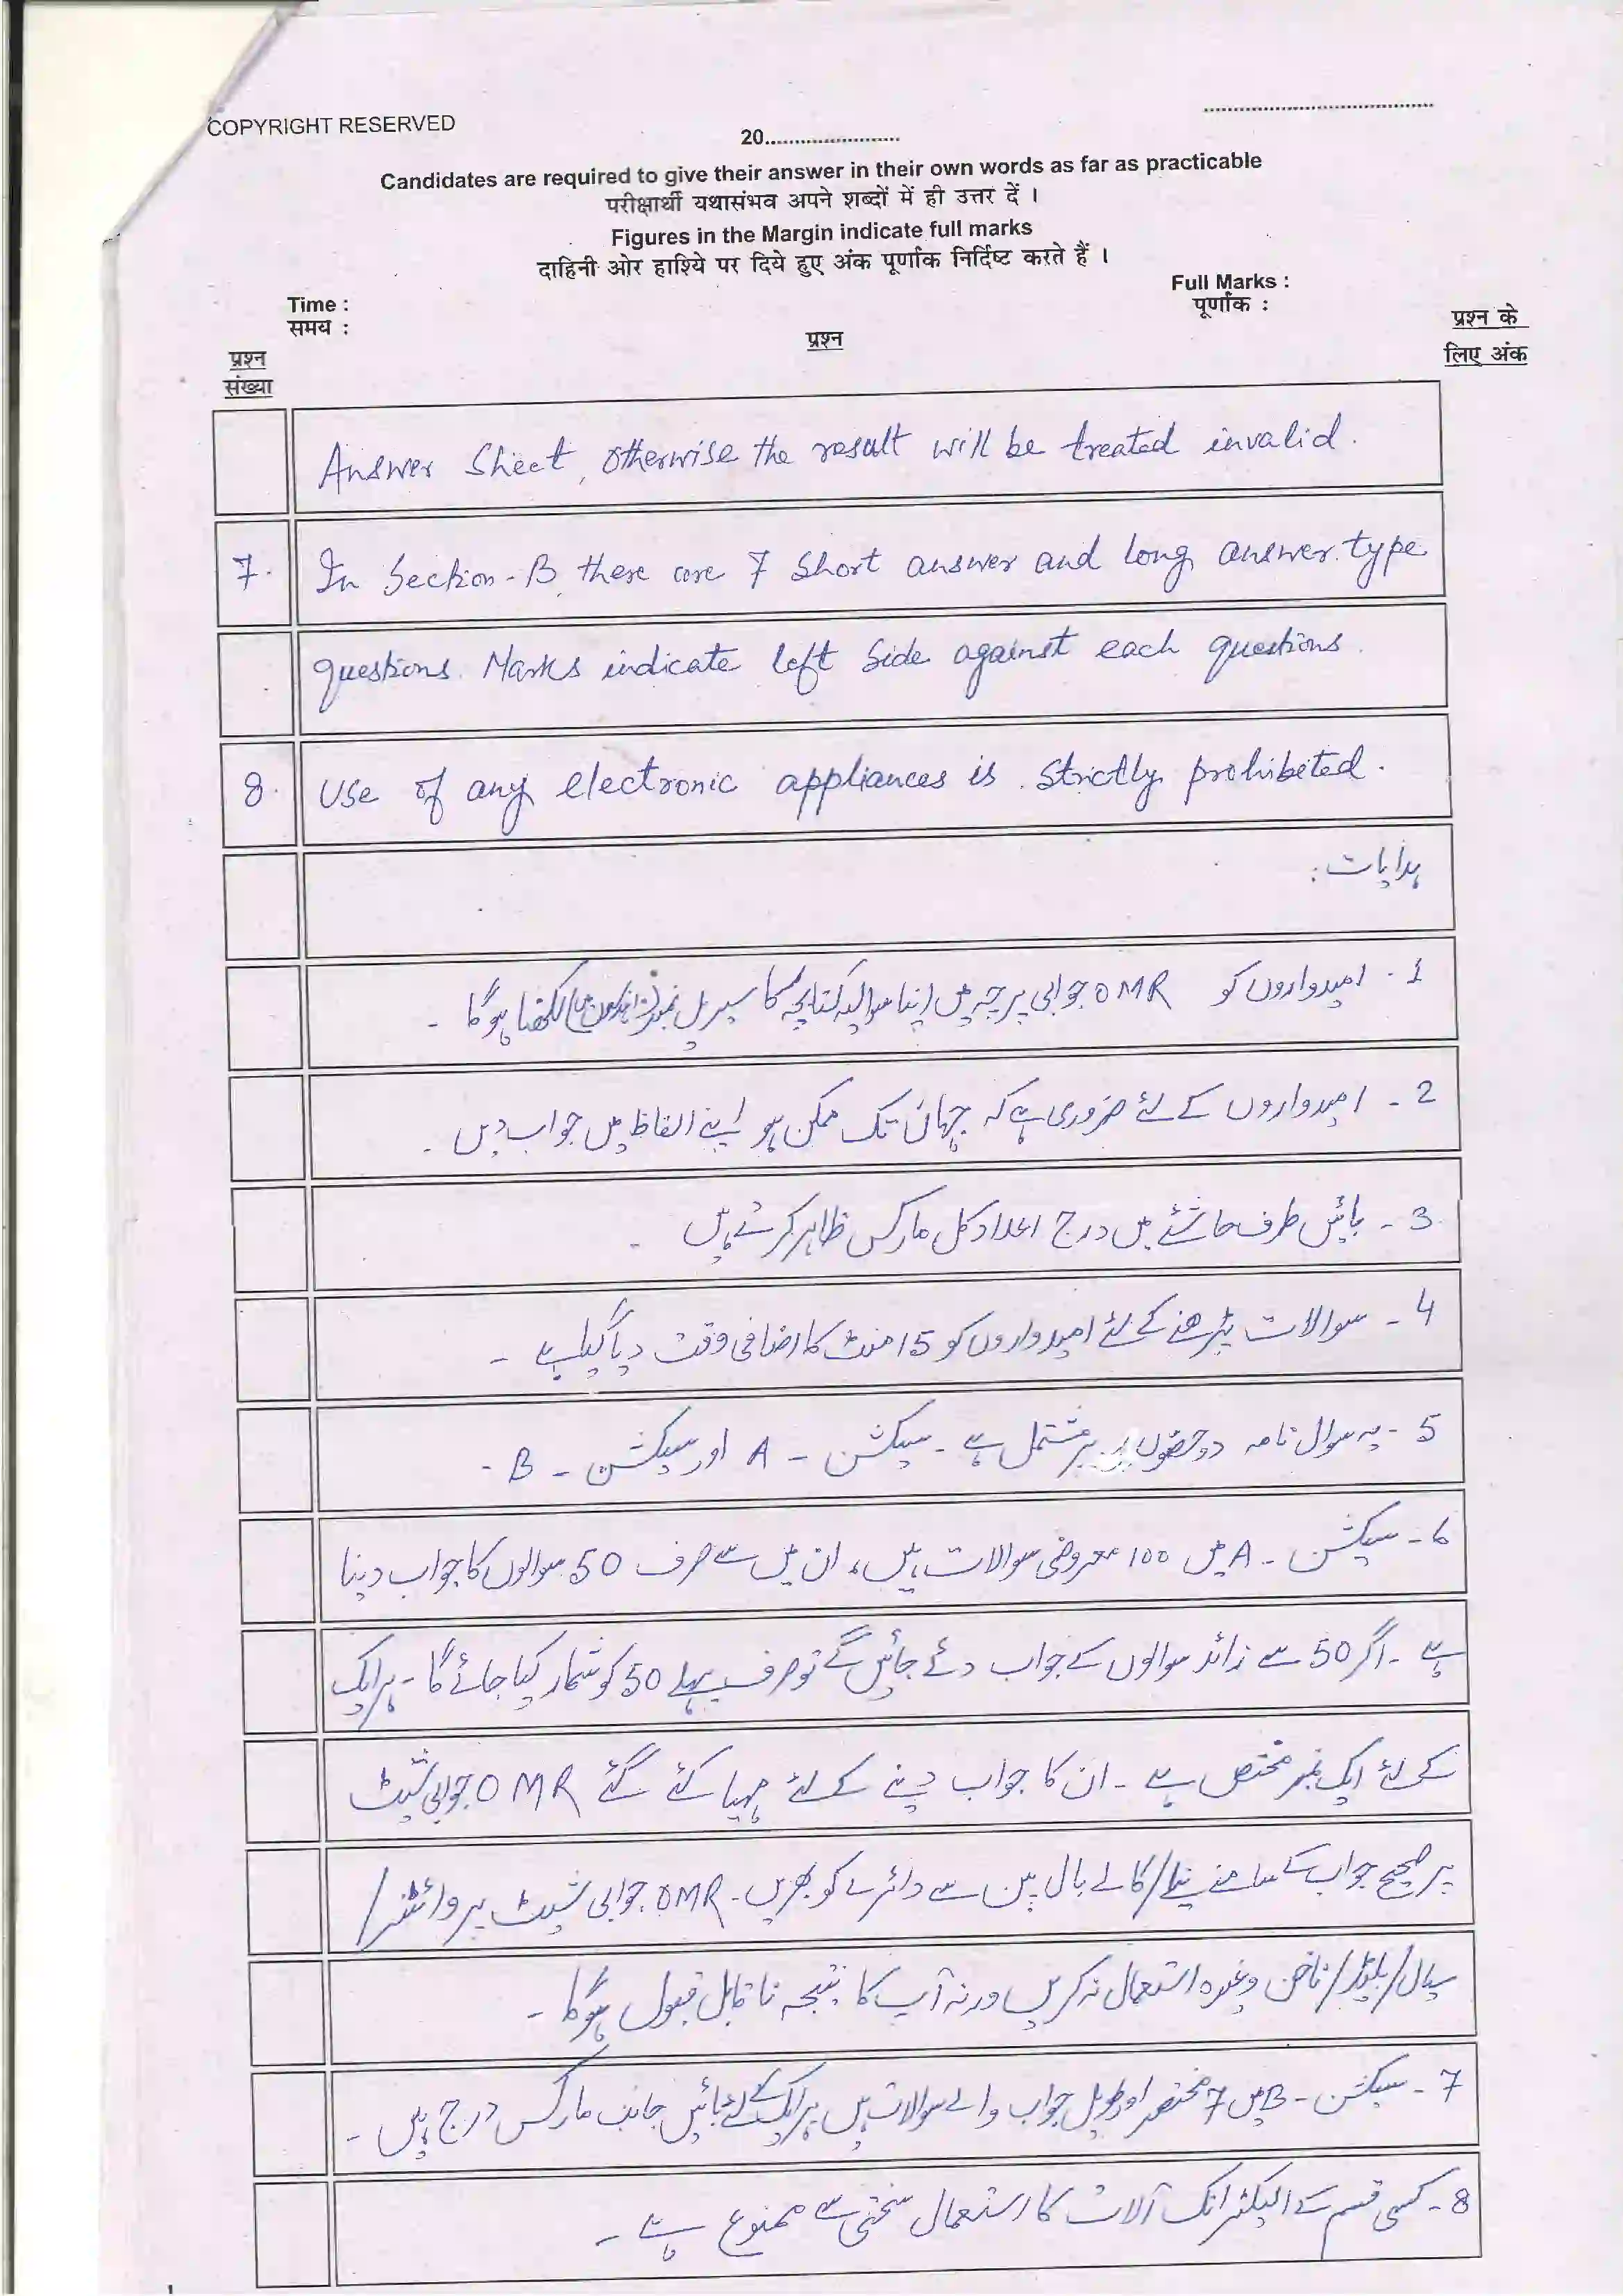 COPYRIGHT RESERVED
20.......................
Candidates are required to give their answer in their own words as far as practicable
परीक्षार्थी यथासंभव अपने शब्दों में ही उत्तर दें ।
Figures in the Margin indicate full marks
दाहिनी ओर हाशिये पर दिये हुए अंक पूर्णांक निर्दिष्ट करते हैं ।
Time : Full Marks :
समय : पूर्णांक :
प्रश्न संख्या
प्रश्न
प्रश्न के लिए अंक
Answer Sheet, otherwise the result will be treated invalid.
7. In Section-B, there are 7 short answer and long answer type
questions. Marks indicate left side against each questions.
8. Use of any electronic appliances is strictly prohibited.
ہدایات :
1 - امیدواروں کو OMR جوابی پرچہ میں اپنا سوالیہ کتابچہ کا سیریل نمبر (10 ہندسوں میں) لکھنا ہوگا -
2 - امیدواروں کے لئے ضروری ہے کہ جہاں تک ممکن ہو اپنے الفاظ میں جواب دیں -
3 - بائیں طرف حاشئے میں درج اعداد کل مارکس ظاہر کرتے ہیں -
4 - سوالات پڑھنے کے لئے امیدواروں کو 15 منٹ کا اضافی وقت دیا گیا ہے -
5 - یہ سوال نامہ دو حصّوں پر مشتمل ہے - سیکشن - A اور سیکشن - B -
6 - سیکشن - A میں 100 معروضی سوالات ہیں، ان میں سے صرف 50 سوالوں کا جواب دینا
ہے - اگر 50 سے زائد سوالوں کے جواب دئے جائیں گے تو صرف پہلے 50 کو شمار کیا جائے گا - ہر ایک
کے لئے ایک نمبر مختص ہے - ان کا جواب دینے کے لئے مہیا کئے گئے OMR جوابی شیٹ
پر صحیح جواب کے سامنے نیلے/کالے بال پین سے دائرے کو بھریں - OMR جوابی شیٹ پر وائٹنر/
سیال/بلیڈ/ناخن وغیرہ استعمال نہ کریں ورنہ آپ کا نتیجہ ناقابل قبول ہوگا -
7 - سیکشن - B میں 7 مختصر اور طویل جواب والے سوالات ہیں ہر ایک کے لئے بائیں جانب مارکس درج ہیں -
8 - کسی قسم کے الیکٹرانک آلات کا استعمال سختی سے ممنوع ہے -